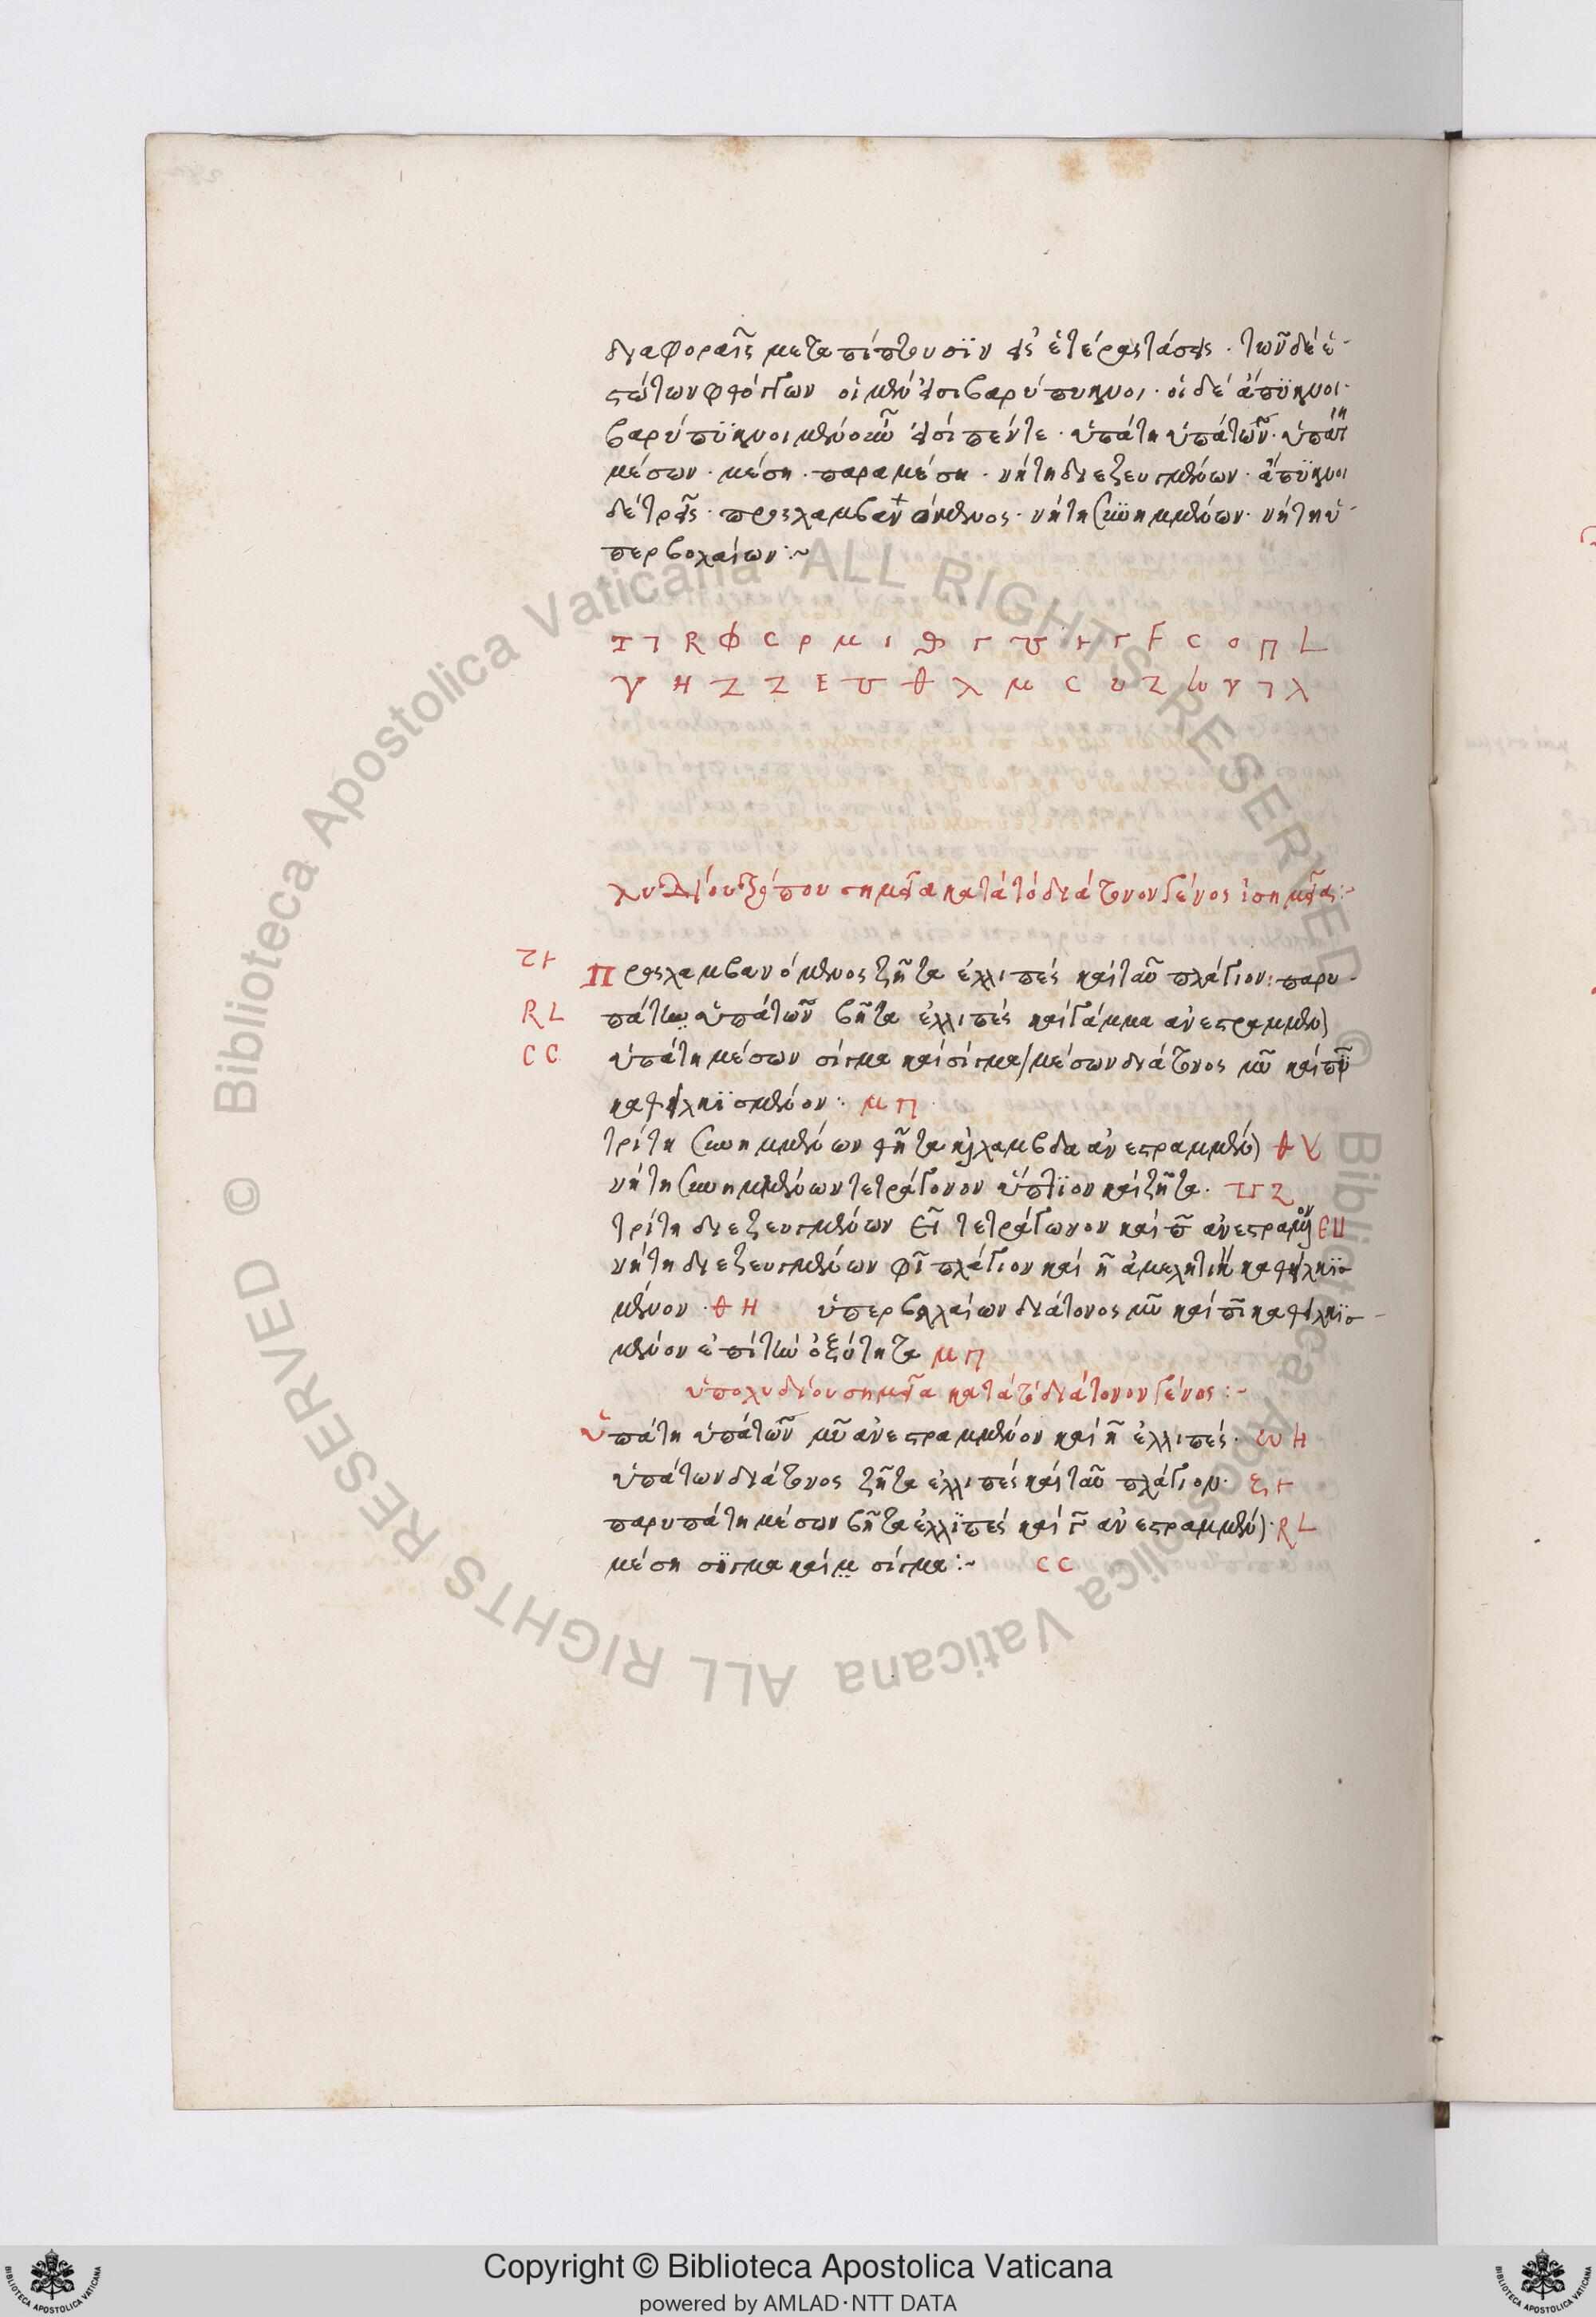 διαφοραῖς μεταπίπτουσϊν εἰς ἑτέρας τάσεις · τῶν δὲ ἑ-
στώτων φθόγγων οἱ μέν εἰσι βαρύπυκνοι · οἱ δὲ ἄπϋκνοι ·
βαρύπϋκνοι μὲν οὖν εἰσὶ πέντε · ὑπάτη ὑπάτων · ὑπάτη
μέσων · μέση · παραμέση · νήτη διεζευγμένων · ἄπϋκνοι
δὲ τρεῖς · προσλαμβανόμενος · νήτη συνημμένων · νήτη ὑ-
περβολαίων :~
R Φ C Ρ Μ Ι Γ Γ F C Ο Π L
Η Ζ Ζ Ε θ λ μ C
λυδίου τρόπου σημεῖα κατὰ τὸ διάτονον γένος
Προσλαμβανόμενος ζῆτα ἐλλιπὲς καὶ ταῦ πλάγιον : παρυ-
R L πάτη ὑπάτων βῆτα ἐλλιπὲς καὶ γάμμα ἀνεστραμμένον
C C ὑπάτη μέσων σίγμα καὶ σίγμα / μέσων διάτονος μῦ καὶ πῖ
καθειλκϋσμένον : μ π
τρίτη συνημμένων θῆτα καὶ λάμβδα ἀνεστραμμένον θ V
νήτη συνημμένων τετράγονον ὕπτϊον καὶ ζῆτα · Ζ
τρίτη διεζευγμένων εῖ τετράγωνον καὶ π ἀνεστραμμένον Ε
νήτη διεζευγμένων φῖ πλάγιον καὶ η ἀμελητικὸν καθειλκϋσ-
μένον · Η ὑπερβολαίων διάτονος μῦ καὶ πῖ καθειλκϋσ-
μένον ἐπὶ τὴν ὀξύτητα μ π
ὑπολυδίου σημεῖα κατὰ τὸ διάτονον γένος :~
ὑπάτη ὑπάτων μῦ ἀνεστραμμένον καὶ η ἐλλιπές · Η
ὑπάτων διάτονος ζῆτα ἐλλιπὲς καὶ ταῦ πλάγιον ·
παρυπάτη μέσων βῆτα ἐλλϊπὲς καὶ γ ἀνεστραμμένον · R L
μέση σϊγμα καὶ σίγμα :~ C C
Copyright © Biblioteca Apostolica Vaticana
powered by AMLAD·NTT DATA
© Biblioteca Apostolica Vaticana ALL RIGHTS RESERVED
© Biblioteca Apostolica Vaticana ALL RIGHTS RESERVED